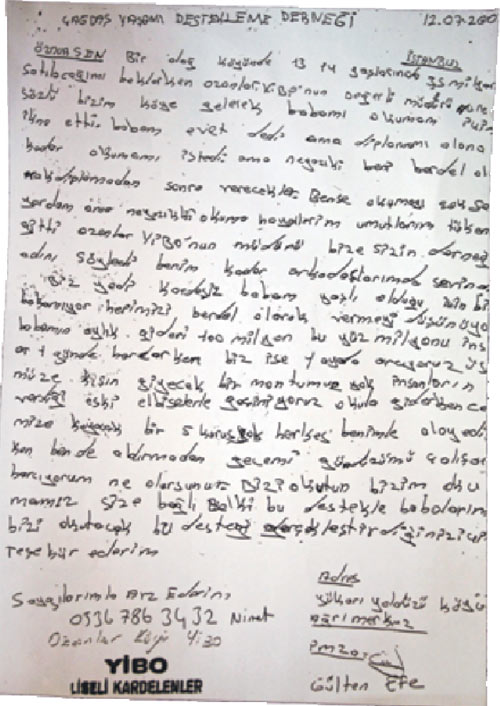 ÇAĞDAŞ YAŞAMI DESTEKLEME DERNEĞİ 12.07.200
ÖZNASEN Bir dağ köyünde 13 14 yaşlarında İSTANBUL
satılacağımı beklerken ozanlar YİBO'nun değerli müdürü
sözlü bizim köye gelerek babamı okumam için
ikna etti. babam evet dedi ama diplomamı alana
kadar okumamı istedi ama neyazıki beni berdel ol
arak diplomadan sonra verecekler. Bense okumayı çok
yordum ama neyazıkki okuma hayallerim umutlarım tüken
gitti ozanlar YİBO'nun müdürü bize sizin derneğ
adını söyledi benim kadar arkadaşlarımda sevind
Biz yedi kardeşiz babam yaşlı olduğu için bi
bakamıyor hepimizi berdel olarak vermeyi düşünüyo
babamın aylık gideri 100 milyon bu yüz milyonu ins
1 günde harcarken biz ise 1 ayda
müze kışın giyecek bir montumuz yok insanların
verdiği eski elbiselerle geçiniyoruz okula giderken ce
mize koyacak bir 5 kuruş yok herkes benimle alay edi
ken ben de aldırmadan gecemi gündüzümü çalışar
harcıyorum ne olursunuz Bizi okutun bizim oku
mamız size bağlı Belki bu destekle babalarım
bizi okutacak bu desteği gerçekleştirdiğiniz için
teşekkür ederim
Saygılarımla Arz Ederim
0536 786 3432
Ozanlar Köyü Yibo
YİBO
LİSELİ KARDELENLER
Adres
yukarı yoldüzü köyü
Ağrı merkez
imza:
Gülten Efe